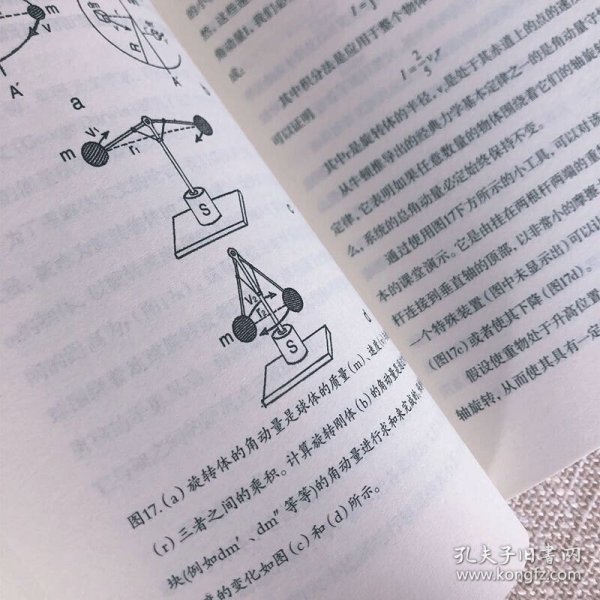 m
v
A'
R
a
m
v₁
r₁
S
c
m
v₂
r₂
S
d
图17.(a)旋转体的角动量是球体的质量(m)、速度
(r)三者之间的乘积。计算旋转刚体(b)的角动量是
块(例如dm'、dm"等等)的角动量进行求和来完成的
的变化如图(c)和(d)所示。
的小
然,这些
角动量l,我们必
l=
成。
其中积分法是应用于整个物体
可以证明
l=2/5 v
其中r是旋转体的半径,v是处于其赤道上的点的速
从牛顿推导出的经典力学基本定律之一的是角动量守
定律,它表明如果任意数量的物体围绕着它们的轴旋转
么,系统的总角动量必定始终保持不变。
通过使用图17下方所示的小工具,可以对该
本的课堂演示。它是由挂在两根杆两端的重
杆连接到垂直轴的顶部,以非常小的摩擦
一个特殊装置(图中未显示出)可以让
(图17c)或者使其下降(图17d)。
假设使重物处于升高位置
轴旋转,从而使其具有一定
孔夫子旧书网
www.kongfz.com